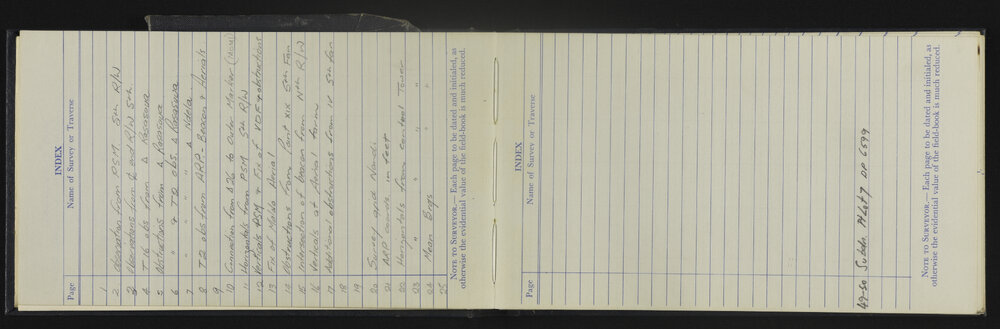 INDEX
Page Name of Survey or Traverse
1
2 Observation from PSM Sth R/W
3 Observations from and R/W Sth
4 T-16 obs from Δ Rasasuva
5 Obstructions from Δ Rasasuva
6 " " T2 obs. Δ Rasasuva
7 " " " Δ Ndela
8 T2 obs from ARP - Beacon & Aerials
9
10 Connection from Δ26 to Outer Marker
11 Horizontals from PSM Sth R/W
12 Verticals PSM & Fix of VDF & obstructions
13 Fix of Malolo Aerial
14 Obstructions from Point XIX Sth Fan
15 Intersection of Beacon from Nth R/W
16 Verticals at Aerial farm
17 Additional obstructions from Sth fan
18
19
20 Survey and Nandi
21 ARP coords in feet
22 Horizontals from Control Tower
23 " " "
24 Mean Brgs "
25
NOTE TO SURVEYOR.— Each page to be dated and initialed, as
otherwise the evidential value of the field-book is much reduced.
INDEX
Page Name of Survey or Traverse
49-50 Subdn Pt Lot 7 DP 6599
NOTE TO SURVEYOR.— Each page to be dated and initialed, as
otherwise the evidential value of the field-book is much reduced.